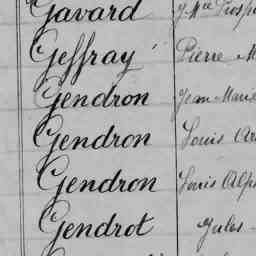 Gavard
Geffray Pierre M
Gendron Jean Marie
Gendron Louis
Gendron Louis Alp
Gendrot Jules